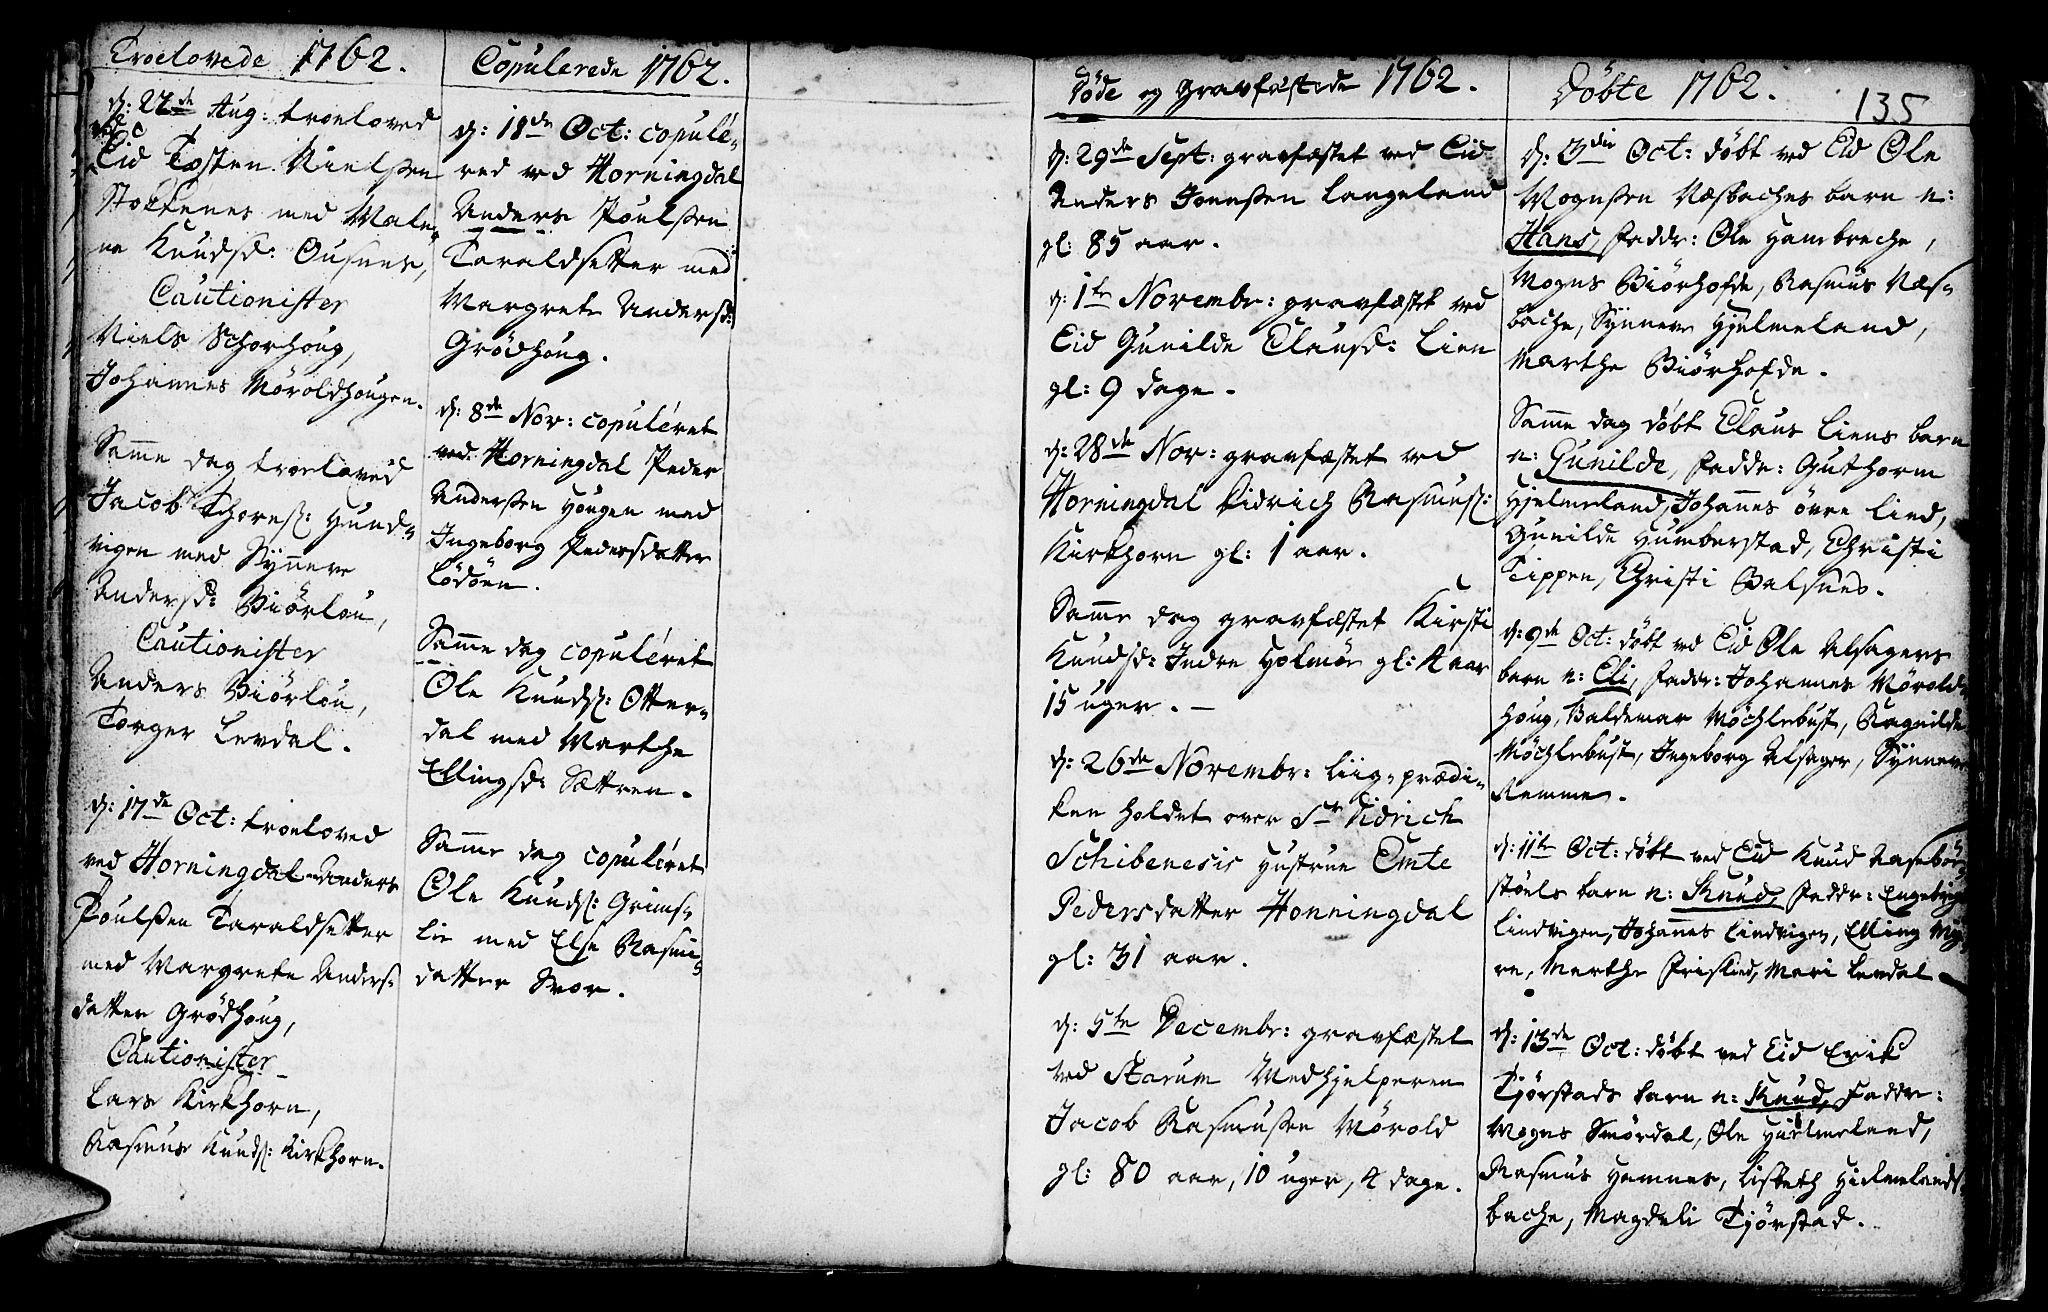 Troelovede 1762.
d: 22de Aug: troeloved
ved Eid Tosten Nielssen
Stokkenes med Male,,
ne Knudsd: Ousnes,
Cautionister
Niels Schorhoug,
Johannes Möroldhougen.
Samme dag troeloved
Jacob Thores: Hund,,
vigen med Synneve
Andersd: Biörlou,
Cautionister
Anders Biörlou,
Torger Levdal.
d: 17de Oct: troeloved
ved Horningdal Anders
Poulssen Taraldsetter
med Margrete Anders,,
datter Grödhoug,
Cautionister
Lars Kirkhorn,
Rasmus Knuds: Kirkhorn.
Copulerede 1762.
d: 18de Oct: copule,,
red ved Horningdal
Anders Poulssen
Taraldsetter med
Margrete Andersd:
Grödhoug.
d: 8de Nov: copuléret
ved Horningdal Peder
Anderssen Hougen med
Ingeborg Pedersdatter
Lödöen.
Samme dag copuléret
Ole Knuds: Otter,,
dal med Marthe
Ellingsd: Sættren.
Samme dag copuléret
Ole Knuds: Grims,,
lie med Else Rasmi,,
datter Svor.
Döde og Gravfæstede 1762.
d: 29de Sept: gravfæstet ved Eid
Anders Jonssen Langeland
gl: 85 aar.
d: 1te Novembr: gravfæstet ved
Eid Gunilde Clausd: Lien
gl: 9 dage.
d: 28de Nov: gravfæstet ved
Horningdal Didrich Rasmus:
Kirkhorn gl: 1 aar.
Samme dag gravfæstet Kirsti
Knudsd: Indre Holmöe gl: 4 aar
15 uger. -
d: 26de Novembr: Liig,,prædi,,
ken holdet over Sr Didrich
Schibenesis Hustrue Emte
Pedersdatter Honningdal
gl: 31 aar.
d: 5te Decembr: gravfæstet
ved Starum Medhjelperen
Jacob Rasmussen Mörold
gl: 80 aar, 10 uger, 4 dage.
Döbte 1762. 135
d: 3die Oct: döbt ved Eid Ole
Mogenssen Næsbaches barn n:
Hans, Faddr: Ole Hambreche,
Mogns Biörhofde, Rasmus Næs,,
bache, Synneve Hjelmeland,
Marthe Biörhofde.
Samme dag döbt Claus Liens barn
n: Gunilde, Fadde: Guthorm
Hjelmeland, Johannes övre Lied,
Gunilde Humberstad, Christi
Tippen, Christi Balsnes.
d: 9de Oct: döbt ved Eid Ole Alsagers
barn n: Eli, Faddr: Johannes Mörold,,
houg, Baldemar Möchlebust, Ragnilde
Möchlebust, Ingeborg Alsager, Synneve
Remme.
d: 11te Oct: döbt ved Eid Knud Naseböe,,
stöels barn n: Knud, Faddr: Engebrigt
Lindvigen, Johannes Lindvigen, Elling My,,
re, Marthe Frislied, Mari Levdal.
d: 13de Oct: döbt ved Eid Erik
Tjörstads barn n: Knud, Faddre:
Mogns Smördal, Ole Hjelmeland,
Rasmus Hamnes, Lisbeth Hielmelands,,
bache, Magdeli Tjörstad.